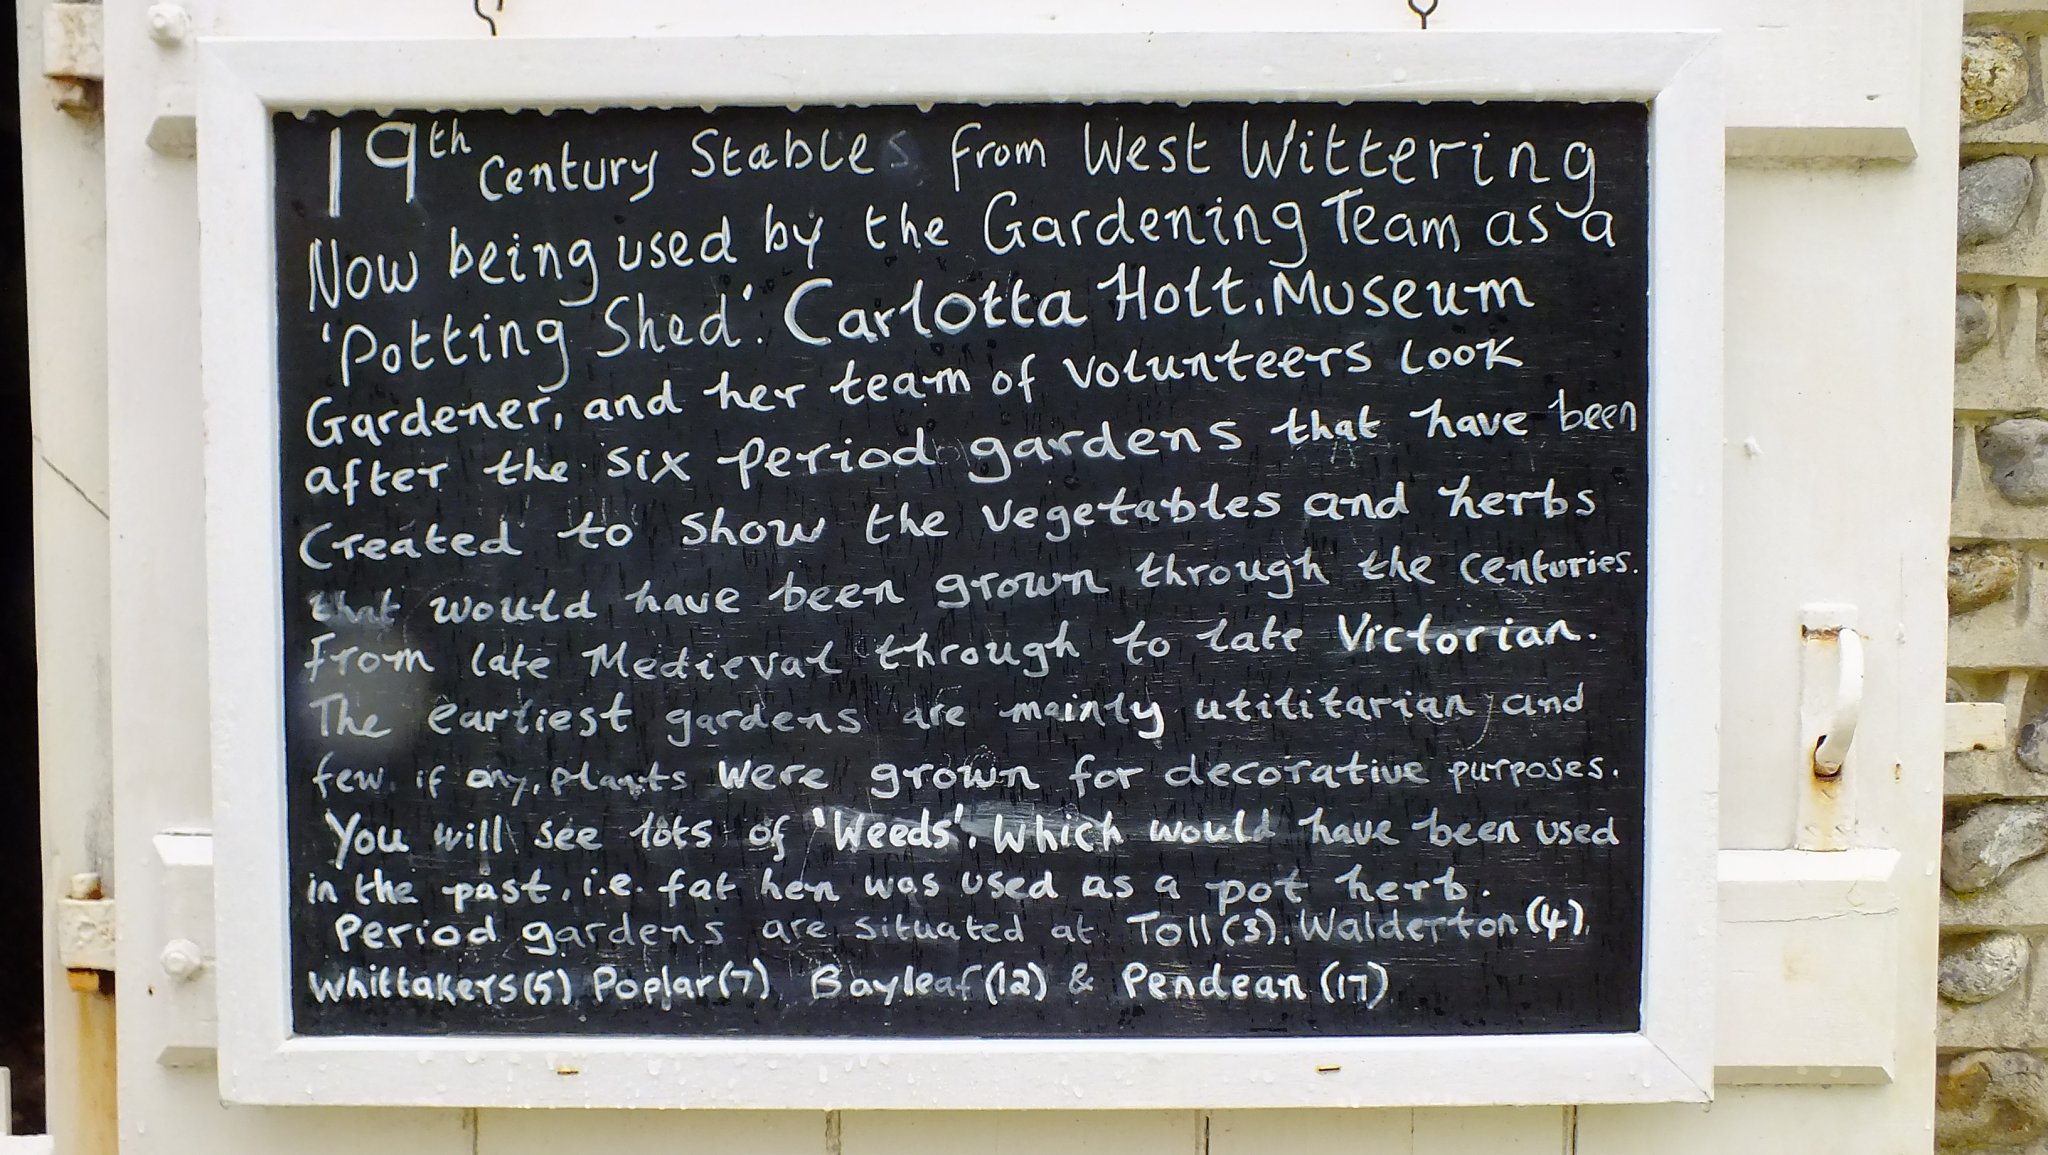 19th Century Stables from West Wittering
Now being used by the Gardening Team as a
'Potting Shed'. Carlotta Holt, Museum
Gardener, and her team of volunteers look
after the six period gardens that have been
Created to show the vegetables and herbs
that would have been grown through the centuries.
From late Medieval through to late Victorian.
The earliest gardens are mainly utilitarian, and
few, if any, plants were grown for decorative purposes.
You will see lots of 'Weeds', which would have been used
in the past, i.e. fat hen was used as a pot herb.
Period gardens are situated at Toll (3), Walderton (4),
Whittakers (5) Poplar (7) Bayleaf (12) & Pendean (17)